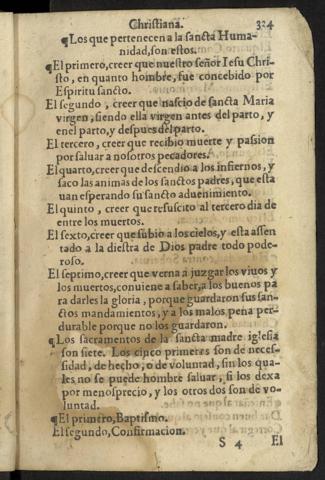 Christiana. 324
¶Los que pertenecen a la sancta Huma-
nidad, son estos.
¶El primero, creer que nuestro señor Iesu Chri-
sto, en quanto hombre, fue concebido por
Espiritu sancto.
El segundo, creer que nascio de sancta Maria
virgen, siendo ella virgen antes del parto, y
en el parto, y despues del parto.
El tercero, creer que recibio muerte y passion
por saluar a nosotros pecadores.
El quarto, creer que descendio a los infiernos, y
saco las animas de los sanctos padres, que esta
uan esperando su sancto aduenimiento.
El quinto, creer que resuscito al tercero dia de
entre los muertos.
El sexto, creer que subio a los cielos, y esta assen
tado a la diestra de Dios padre todo pode-
roso.
El septimo, creer que verna a juzgar los viuos y
los muertos, conuiene a saber, a los buenos pa
ra darles la gloria, porque guardaron sus san-
ctos mandamientos, y a los malos pena per-
durable porque no los guardaron.
¶Los sacramentos de la sancta madre iglesia
son siete. Los cinco primeros son de neces-
sidad, de hecho, o de voluntad, sin los qua-
les no se puede hombre saluar, si los dexa
por menosprecio, y los otros dos son de vo-
luntad.
¶El primero, Baptismo.
El segundo, Confirmacion.
S 4 El